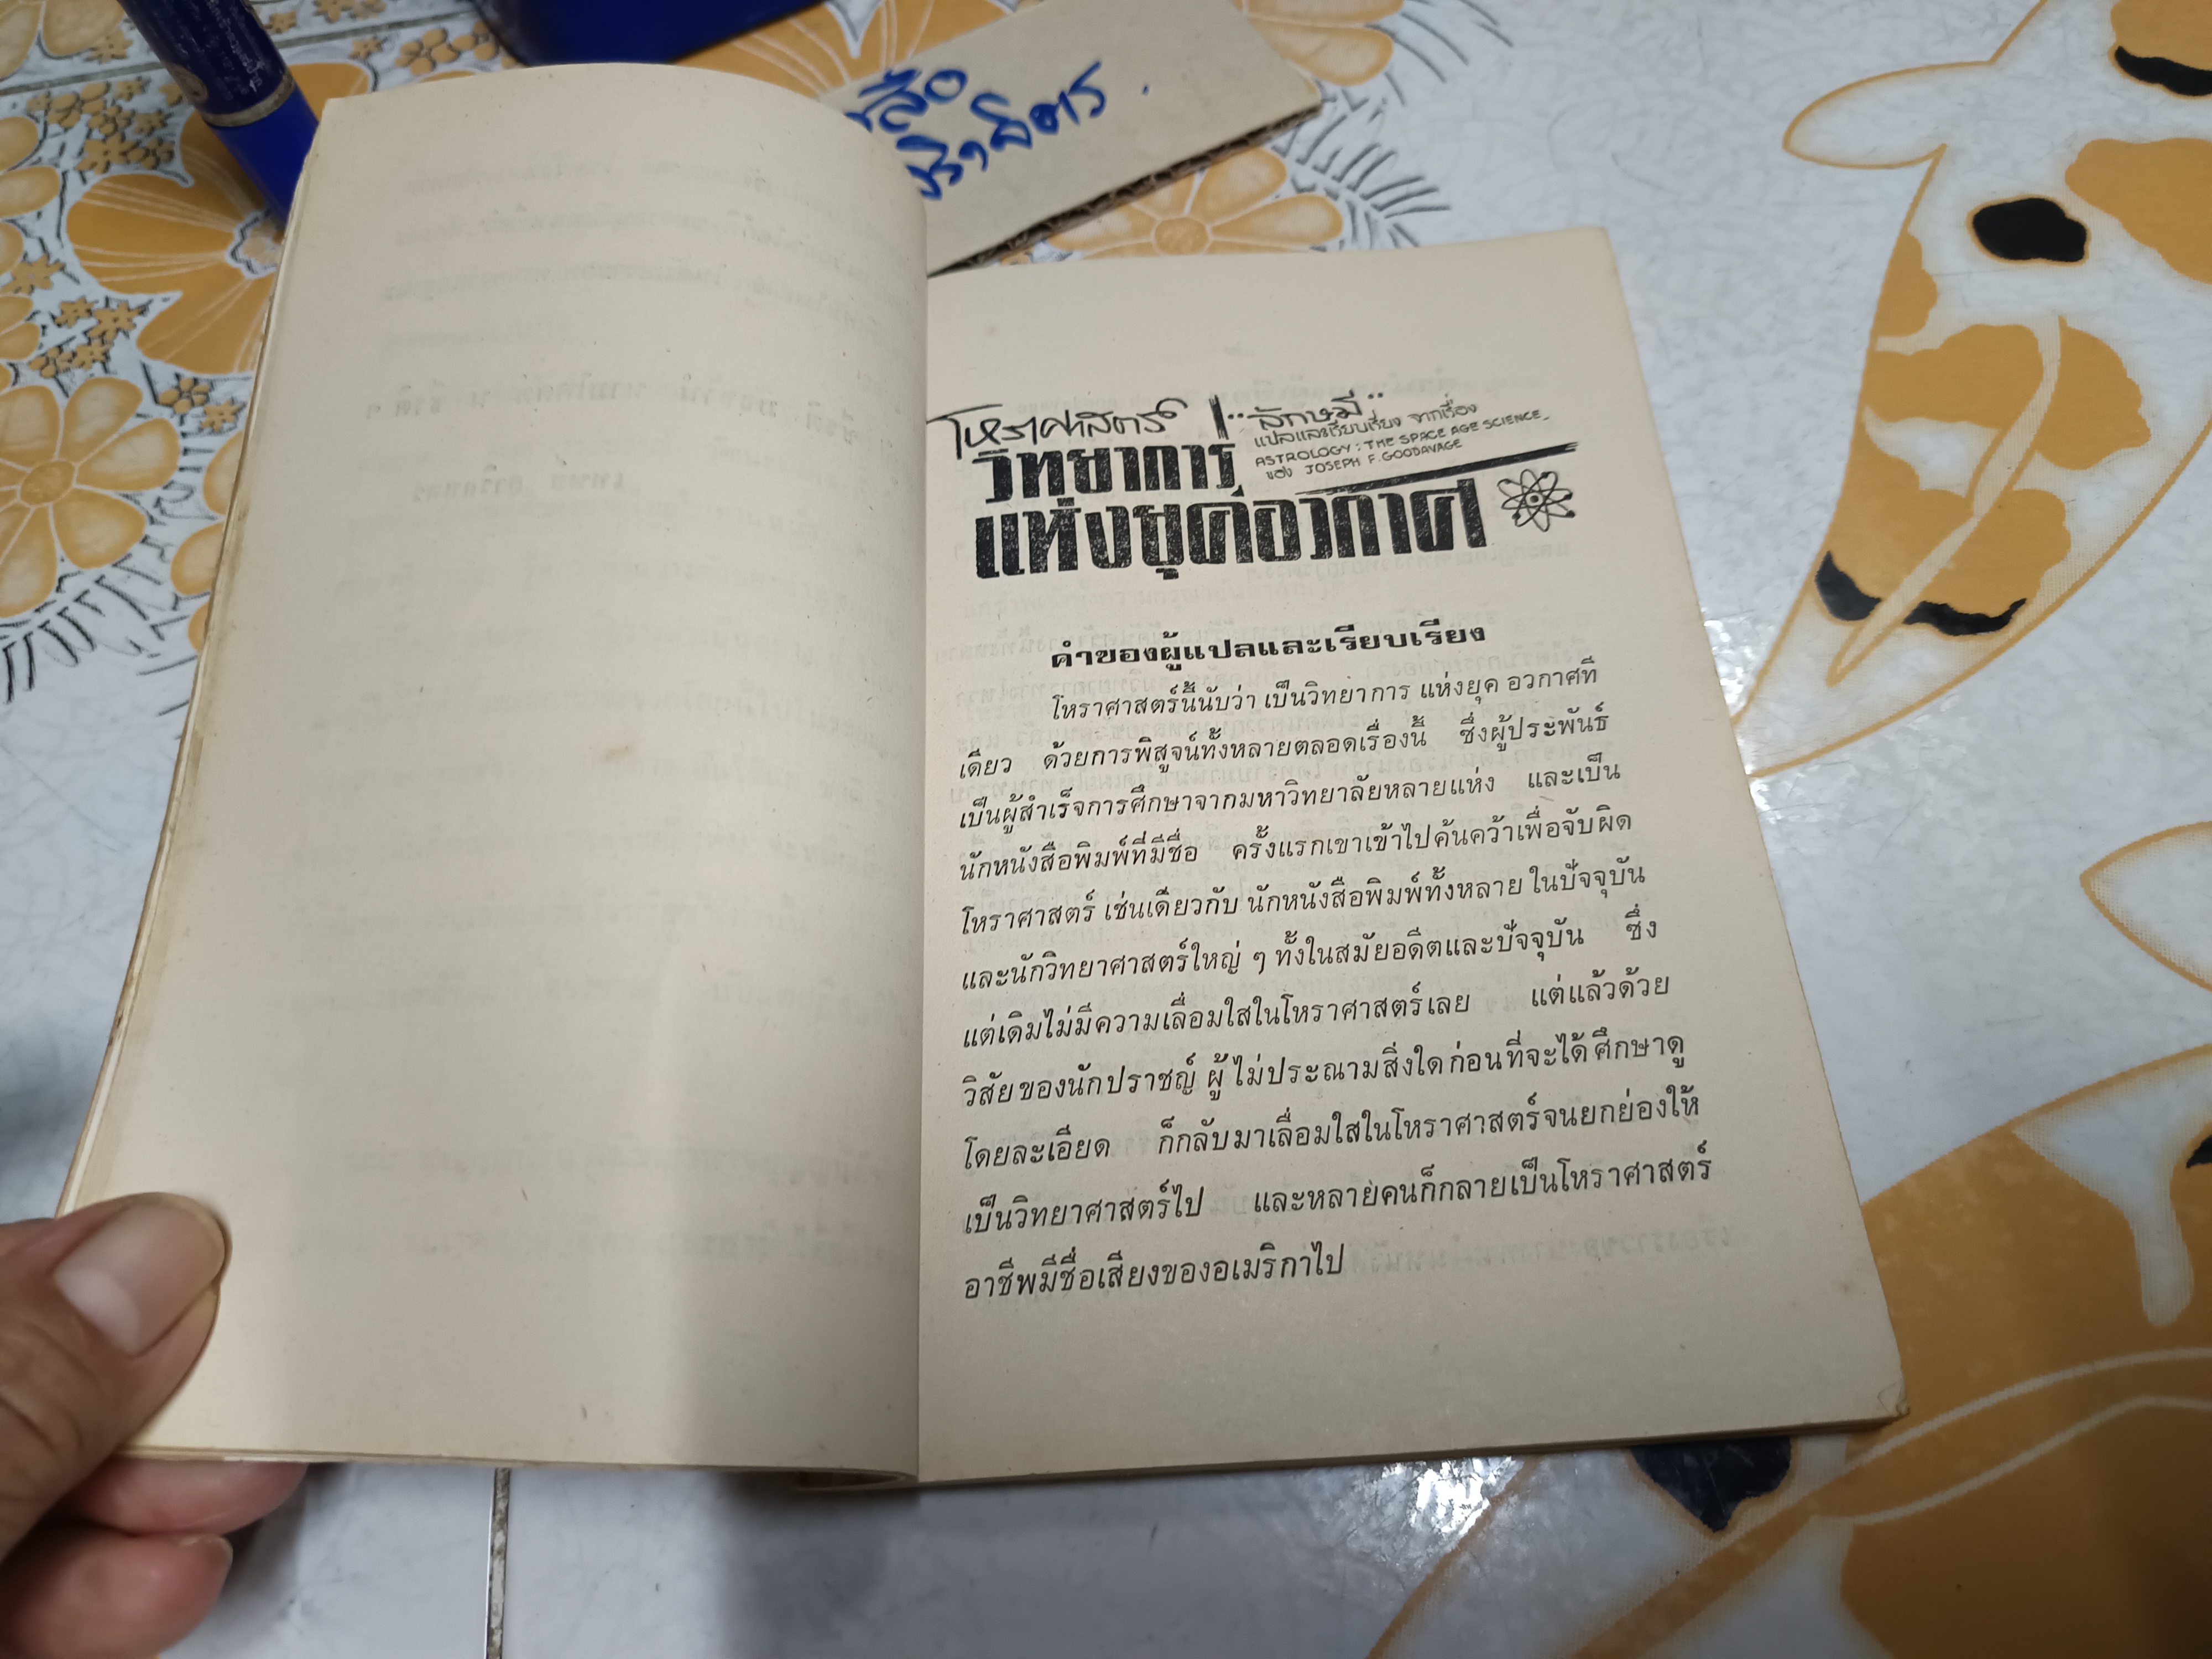 โหราศาสตร์
วิทยาการ
แห่งยุคอวกาศ
"ลักษมี"
แปลและเรียบเรียง จากเรื่อง
ASTROLOGY : THE SPACE AGE SCIENCE
ของ JOSEPH F. GOODAVAGE
คำของผู้แปลและเรียบเรียง
โหราศาสตร์นี้นับว่า เป็นวิทยาการ แห่งยุค อวกาศที
เดียว ด้วยการพิสูจน์ทั้งหลายตลอดเรื่องนี้ ซึ่งผู้ประพันธ์
เป็นผู้สำเร็จการศึกษาจากมหาวิทยาลัยหลายแห่ง และเป็น
นักหนังสือพิมพ์ที่มีชื่อ ครั้งแรกเขาเข้าไปค้นคว้าเพื่อจับผิด
โหราศาสตร์ เช่นเดียวกับ นักหนังสือพิมพ์ทั้งหลาย ในปัจจุบัน
และนักวิทยาศาสตร์ใหญ่ ๆ ทั้งในสมัยอดีตและปัจจุบัน ซึ่ง
แต่เดิมไม่มีความเลื่อมใสในโหราศาสตร์เลย แต่แล้วด้วย
วิสัยของนักปราชญ์ ผู้ ไม่ประณามสิ่งใด ก่อนที่จะได้ ศึกษาดู
โดยละเอียด ก็กลับมาเลื่อมใสในโหราศาสตร์จนยกย่องให้
เป็นวิทยาศาสตร์ไป และหลายคนก็กลายเป็นโหราศาสตร์
อาชีพมีชื่อเสียงของอเมริกาไป